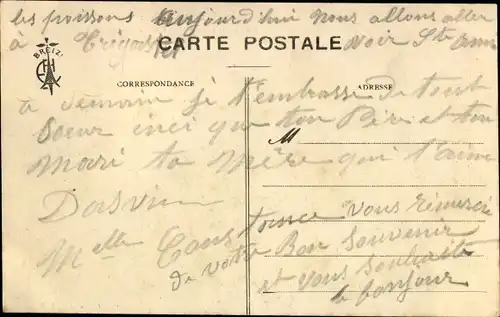 les poissons aujourd'hui nous allons aller
à Trégastel voir Ste Anne
BREIZ
CARTE POSTALE
CORRESPONDANCE
ADRESSE
à demain je t'embrasse de tout
Soeur inci que ton Père et ton
M
Mari ta Mère qui t'aime
Melle Constance vous rémercie
de votre Bon Souvenir
et vous souhaite
le bonjour